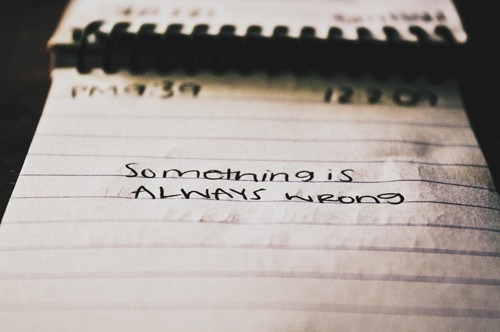 PM 9:39 12 2 07
Something is
ALWAYS wrong